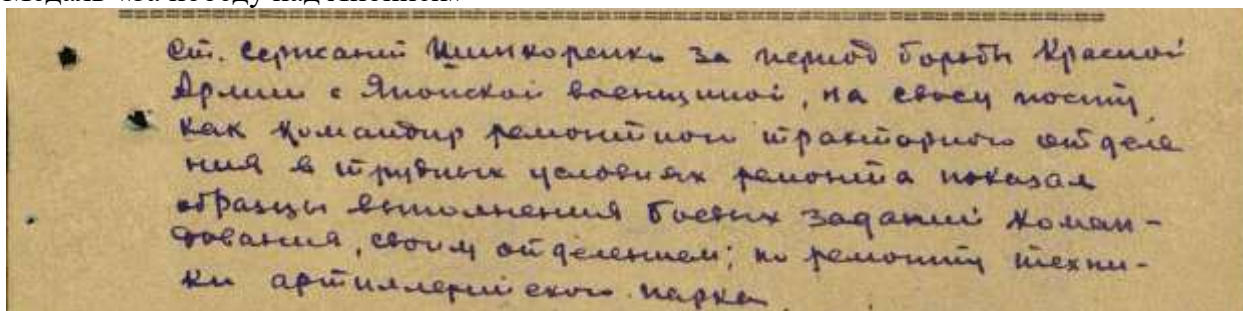 Медаль «За победу над Японией»
Ст. Сержант Шинкоренко за период борьбы Красной
Армии с Японской военщиной, на своем посту
как командир ремонтного тракторного отделе
ния в трудных условиях ремонта показал
образцы выполнения боевых заданий коман-
дования, своим отделением; по ремонту техни-
ки артиллерийского парка